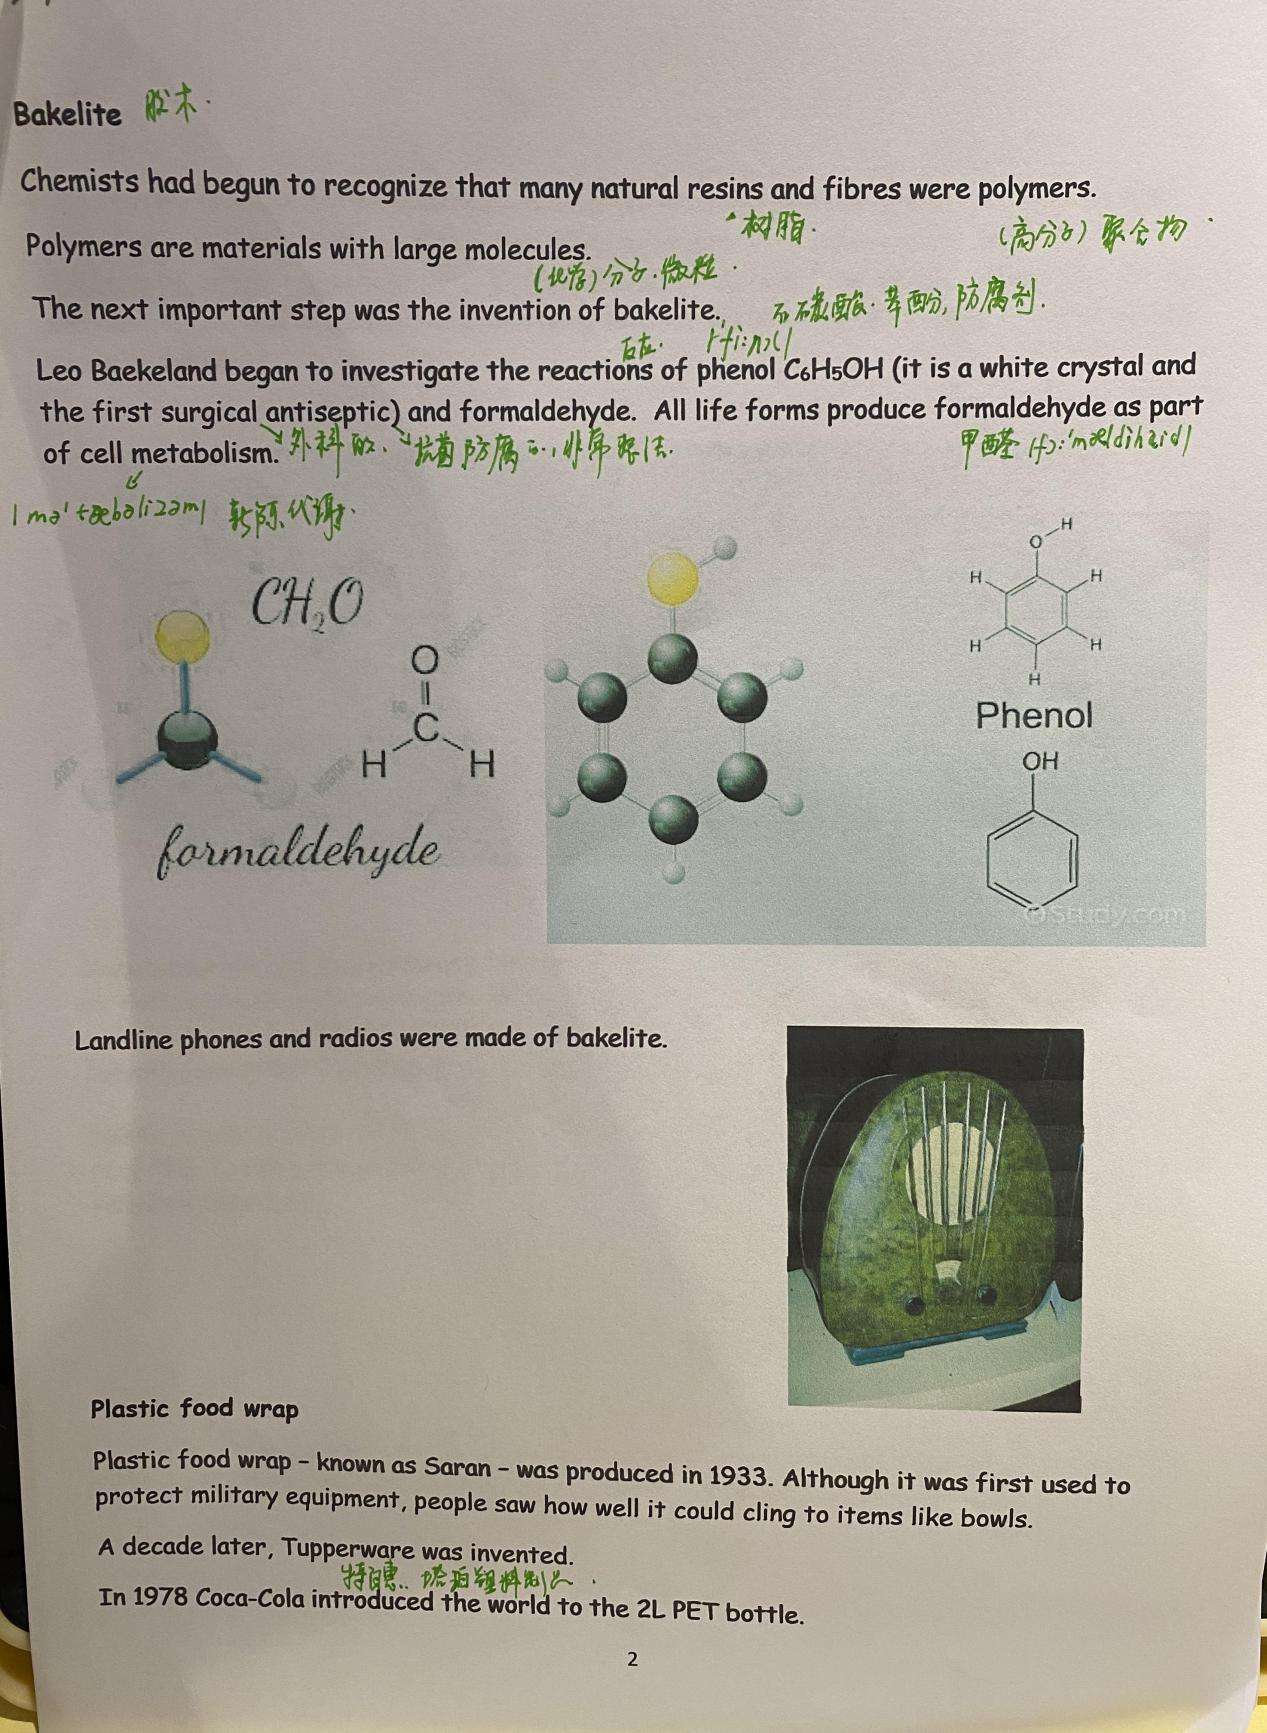 Bakelite 胶木.
Chemists had begun to recognize that many natural resins and fibres were polymers.
树脂. (高分子) 聚合物
Polymers are materials with large molecules.
(化学) 分子. 微粒.
The next important step was the invention of bakelite.
苯酚, 防腐剂.
反应.
Leo Baekeland began to investigate the reactions of phenol C₆H₅OH (it is a white crystal and
the first surgical antiseptic) and formaldehyde. All life forms produce formaldehyde as part
of cell metabolism. 外科 抗菌 防腐 甲醛
新陈代谢.
CH₂O
O
C
H H
formaldehyde
H
O
H H
H H
H
Phenol
OH
©Study.com
Landline phones and radios were made of bakelite.
Plastic food wrap
Plastic food wrap – known as Saran – was produced in 1933. Although it was first used to
protect military equipment, people saw how well it could cling to items like bowls.
A decade later, Tupperware was invented.
特百惠.. 塑料制品.
In 1978 Coca-Cola introduced the world to the 2L PET bottle.
2